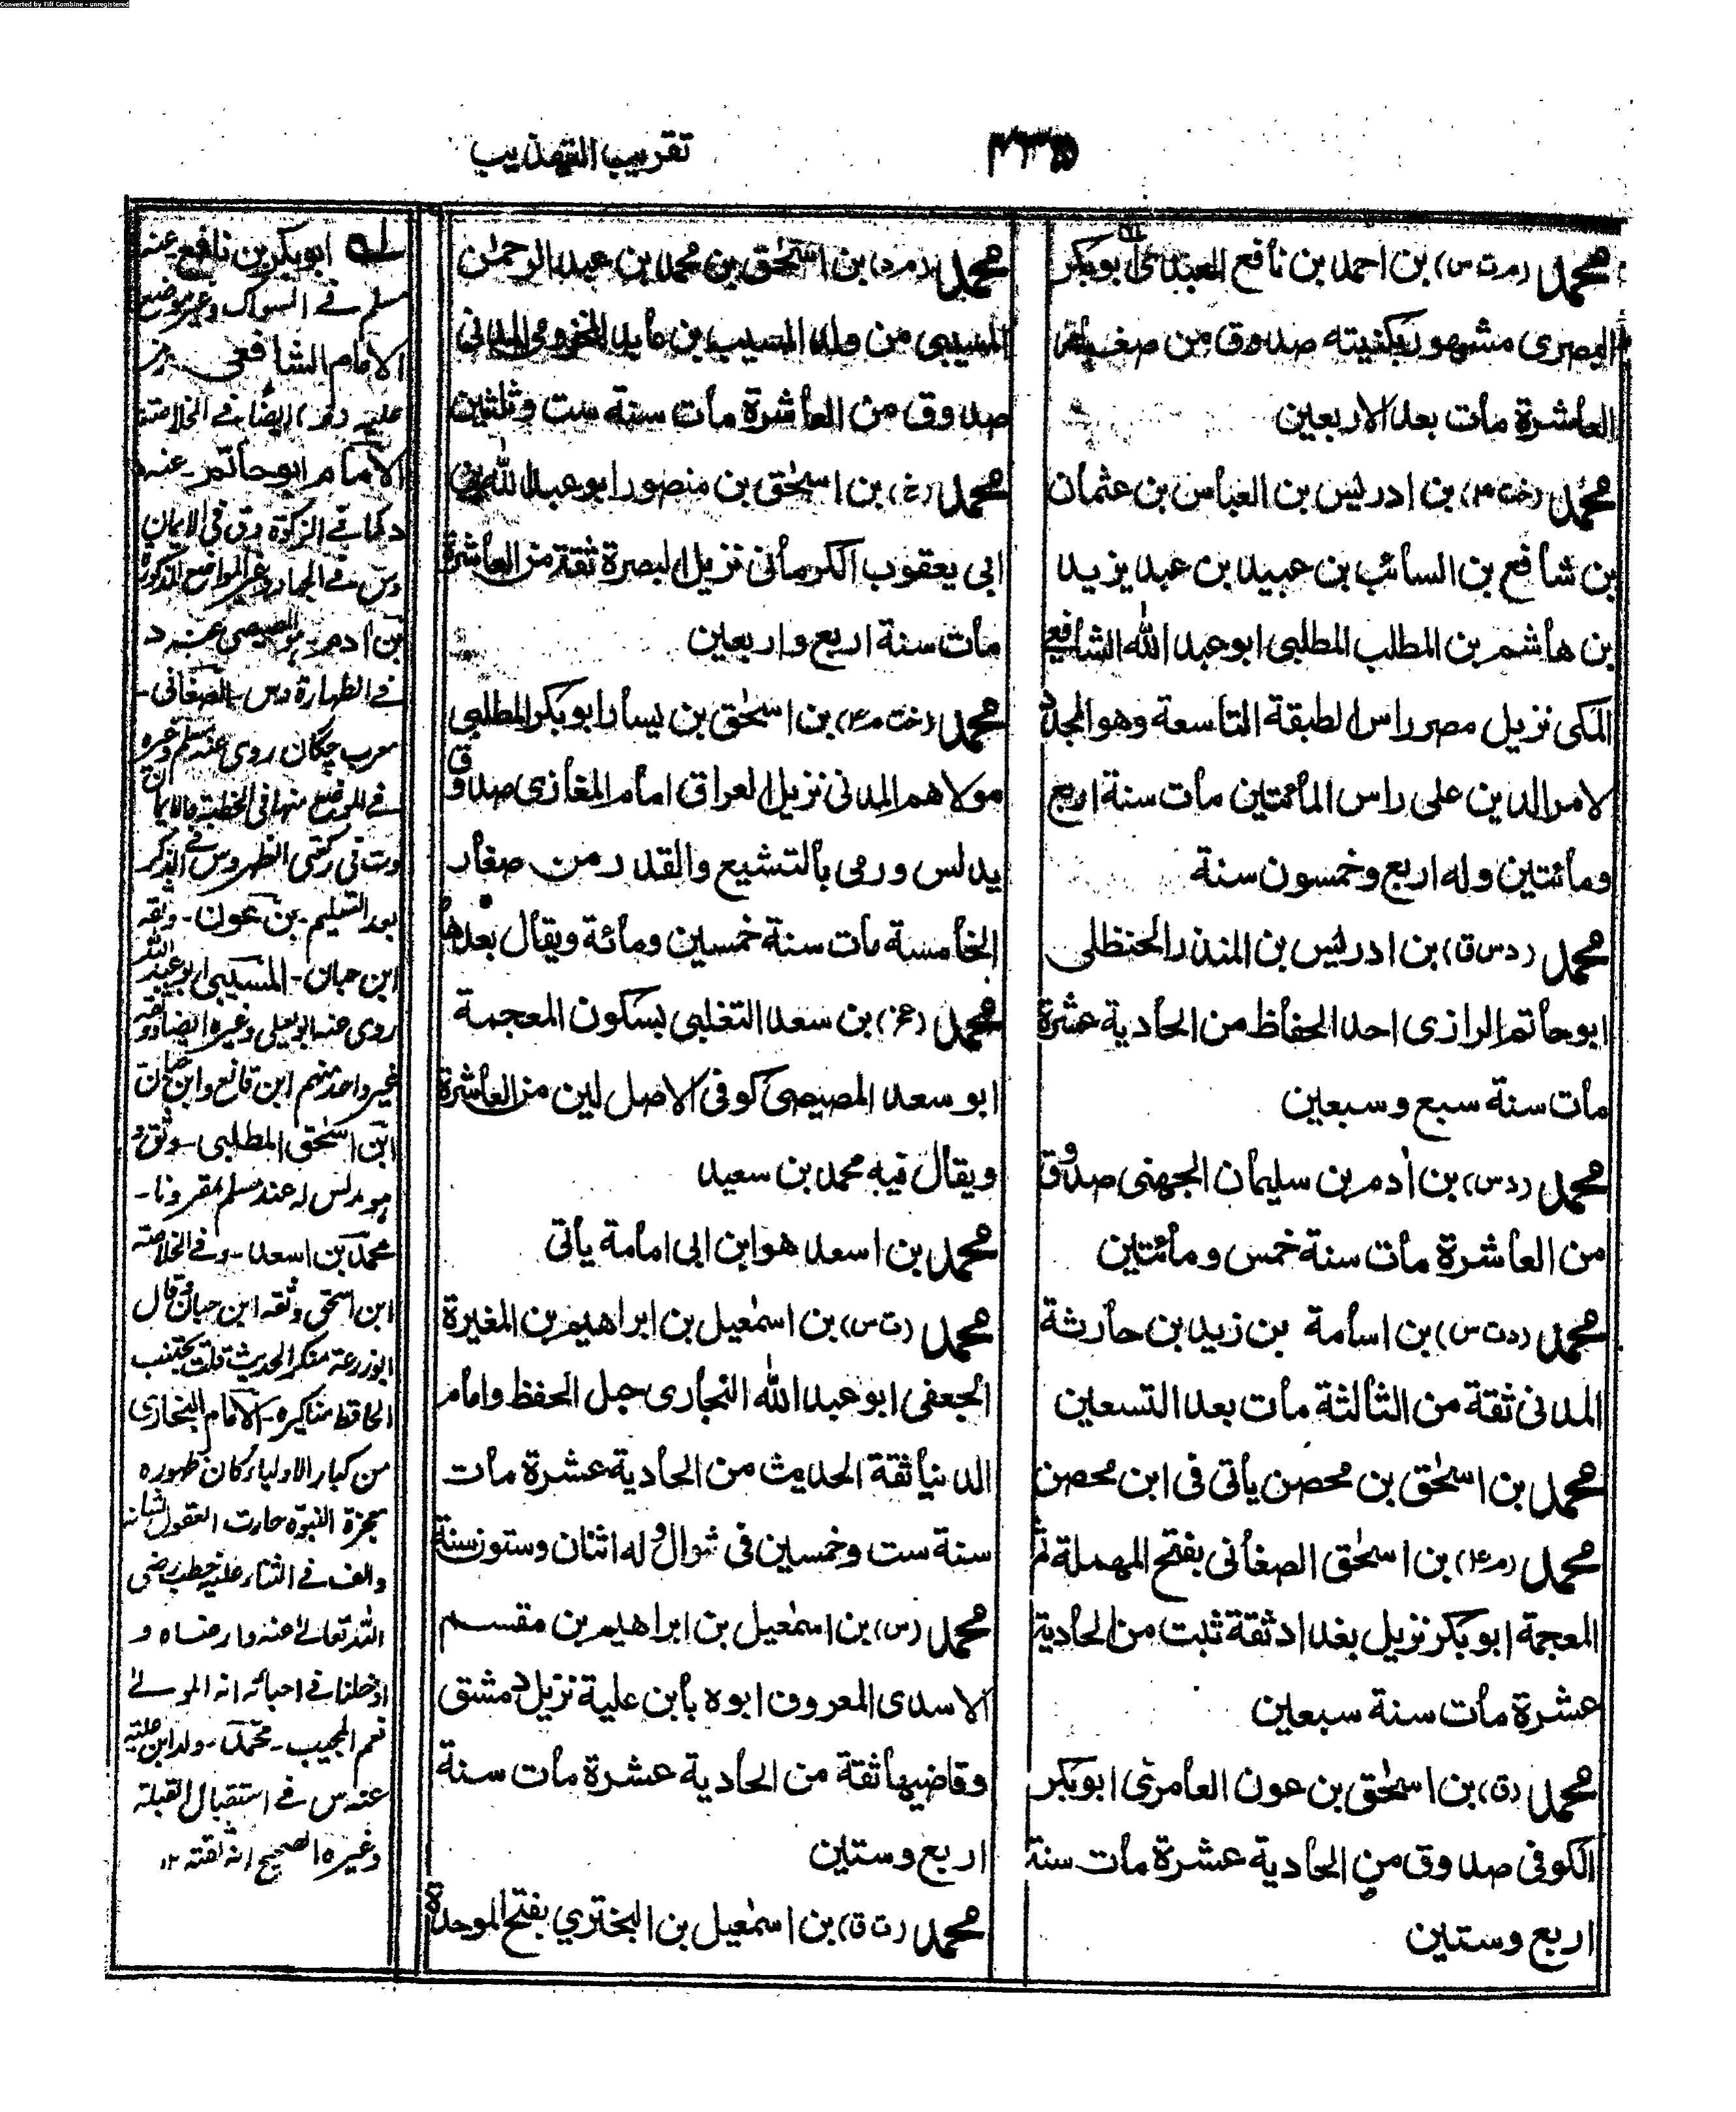 Converted by Tiff Combine - unregistered
تقريب التهذيب
محمد (م ت س) بن احمد بن نافع العبدى ابوبكر
البصرى مشهور بكنيته صدوق من صغار
العاشرة مات بعد الاربعين
محمد (خت ۴) بن ادريس بن العباس بن عثمان
بن شافع بن السائب بن عبيد بن عبد يزيد
بن هاشم بن المطلب المطلبى ابو عبد الله الشافعى
المكى نزيل مصر راس الطبقة التاسعة وهو المجدد
لامر الدين على راس المائتين مات سنة اربع
ومائتين وله اربع وخمسون سنة
محمد (د س ق) بن ادريس بن المنذر الحنظلى
ابو حاتم الرازى احد الحفاظ من الحادية عشرة
مات سنة سبع وسبعين
محمد (د س) بن أدم بن سليمان الجهنى صدوق
من العاشرة مات سنة خمس ومائتين
محمد (د ت س) بن اسامة بن زيد بن حارثة
المدنى ثقة من الثالثة مات بعد التسعين
محمد بن اسحٰق بن محصن يأتى فى ابن محصن
محمد (م ۴) بن اسحٰق الصغانى بفتح المهملة ثم
المعجمة ابوبكر نزيل بغداد ثقة ثبت من الحادية
عشرة مات سنة سبعين
محمد (ق) بن اسحٰق بن عون العامرى ابوبكر
الكوفى صدوق من الحادية عشرة مات سنة
اربع وستين
محمد (م د) بن اسحٰق بن محمد بن عبد الرحمٰن
المسيبى من ولد المسيب بن عابد المخزومى المدنى
صدوق من العاشرة مات سنة ست وثلثين
محمد (خ) بن اسحٰق بن منصور ابو عبد الله بن
ابى يعقوب الكرمانى نزيل البصرة ثقة من العاشرة
مات سنة اربع واربعين
محمد (خت م ۴) بن اسحٰق بن يسار ابوبكر المطلبى
مولاهم المدنى نزيل العراق امام المغازى صدوق
يدلس ورمى بالتشيع والقدر من صغار
الخامسة مات سنة خمسين ومائة ويقال بعدها
محمد (عز) بن سعد التغلبى بسكون المعجمة
ابو سعد المصيصى كوفى الاصل لين من العاشرة
ويقال فيه محمد بن سعيد
محمد بن اسعد هو ابن ابى امامة يأتى
محمد (ت س) بن اسمٰعيل بن ابراهيم بن المغيرة
الجعفى ابو عبد الله البخارى جبل الحفظ وامام
الدنيا ثقة الحديث من الحادية عشرة مات
سنة ست وخمسين فى شوال وله اثنان وستون سنة
محمد (س) بن اسمٰعيل بن ابراهيم بن مقسم
الاسدى المعروف ابوه بابن علية نزيل دمشق
وقاضيها ثقة من الحادية عشرة مات سنة
اربع وستين
محمد (ت ق) بن اسمٰعيل بن البخترى بفتح الموحدة
ابوبكر بن نافع عنه
مسلم فے السواك وغير موضع
الامام الشافعى
عليه ايضا فے الخلاصة
الامام ابو حاتم عنه
د كما فے الزكوة وق فى الايمان
وس فے الجهاد وغير المواضع المذكورة
بن ادم المصيصى عنه د
فے الطهارة وس الصغانى -
معرب چگان روى عنه مسلم وغيره
فے المواضع منها فى الخطبة والايمان
وت فى ركعتى الظهر وس فے الذكر
بعد التسليم - بن عون - وثقه
ابن حبان - المسيبى ابو عبد الله
روى عنه ابو يعلى وغيره ايضا وثقه
غير واحد منهم ابن قانع وابن حبان
ابن اسحٰق المطلبى - وثق و
هو مدلس له عند مسلم مقرونا -
محمد بن اسعد - وفے الخلاصة
ابن اسحٰق وثقه ابن حبان وقال
ابو زرعة منكر الحديث قلت يجتنب
الحافظ مناكيره - الامام البخارى
من كبار الاولياء كان ظهوره
معجزة النبوة حارت العقول لشانه
والف فے الثناء عليه خطب رضى
الله تعالےٰ عنه وارضاه و
ادخلنا فے احبائه انه المولےٰ
نعم المجيب - محمد - ولد ابن علية
عنه س فے استقبال القبلة
وغيره الصحيح انه ثقة ١٢